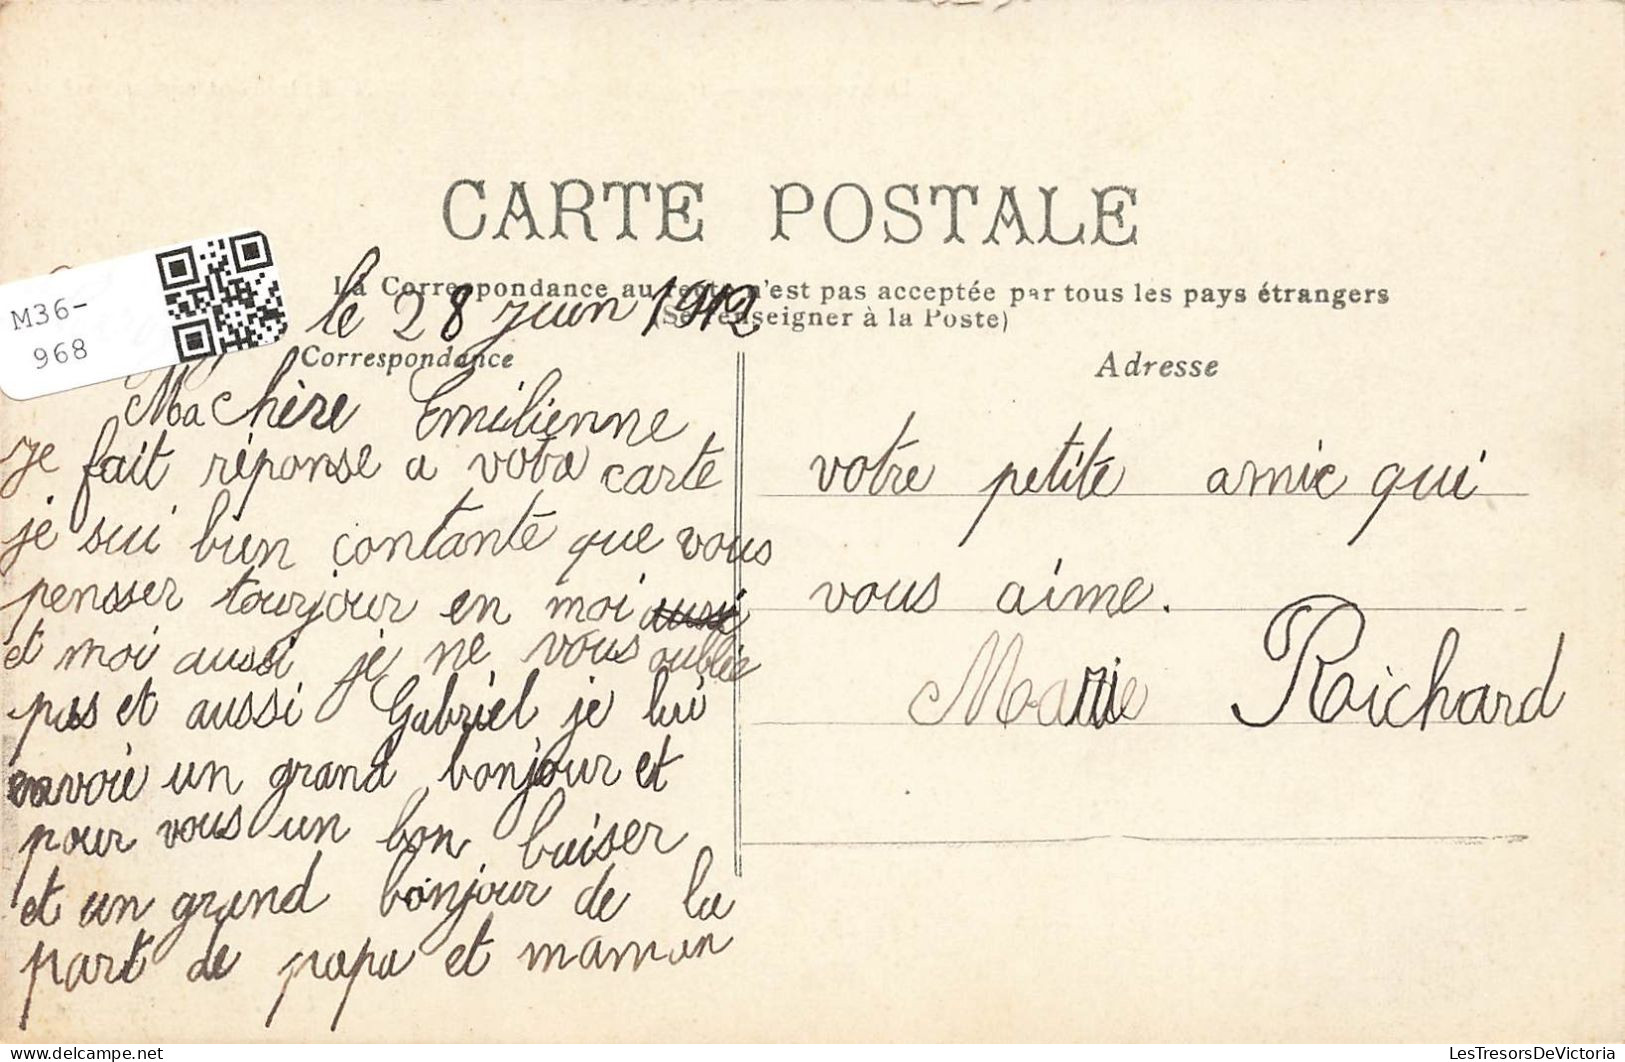 CARTE POSTALE
La Correspondance au recto n'est pas acceptée par tous les pays étrangers
(Se renseigner à la Poste)
M36-
968
le 28 juin 1912
Correspondance
Adresse
Ma chère Emilienne
je fait réponse a votre carte
je sui bien contante que vous
pensser tourjour en moi aussi
et moi aussi je ne vous oublie
pas et aussi Gabriel je lui
envoie un grand bonjour et
pour vous un bon baiser
et un grand bonjour de la
part de papa et maman
votre petite amie qui
vous aime.
Marie Raichard
LesTresorsDeVictoria